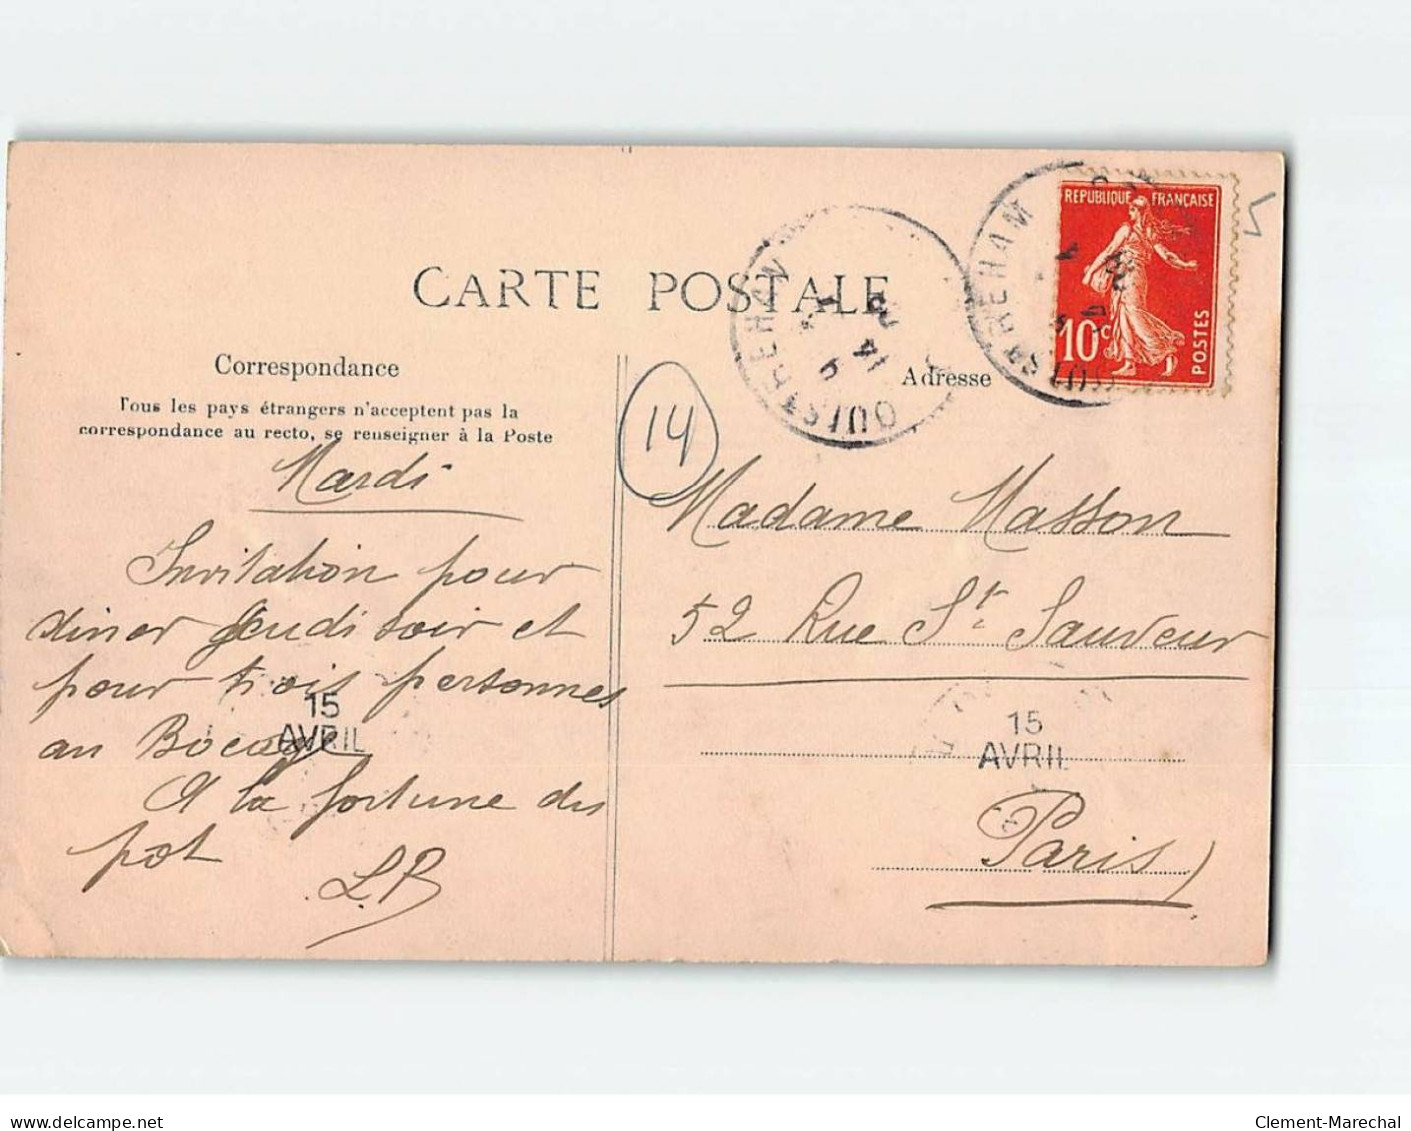 CARTE POSTALE
Correspondance
Tous les pays étrangers n'acceptent pas la
correspondance au recto, se renseigner à la Poste
Mardi
Invitation pour
diner Jeudi soir et
pour trois personnes
au Bocage
A la fortune du
pôt
L.B
15
AVRIL
14
OUISTREHAM
14
OUISTREHAM
REPUBLIQUE FRANÇAISE
10c
POSTES
Adresse
Madame Masson
52 Rue St Sauveur
15
AVRIL
Paris
www.delcampe.net
Clement-Marechal